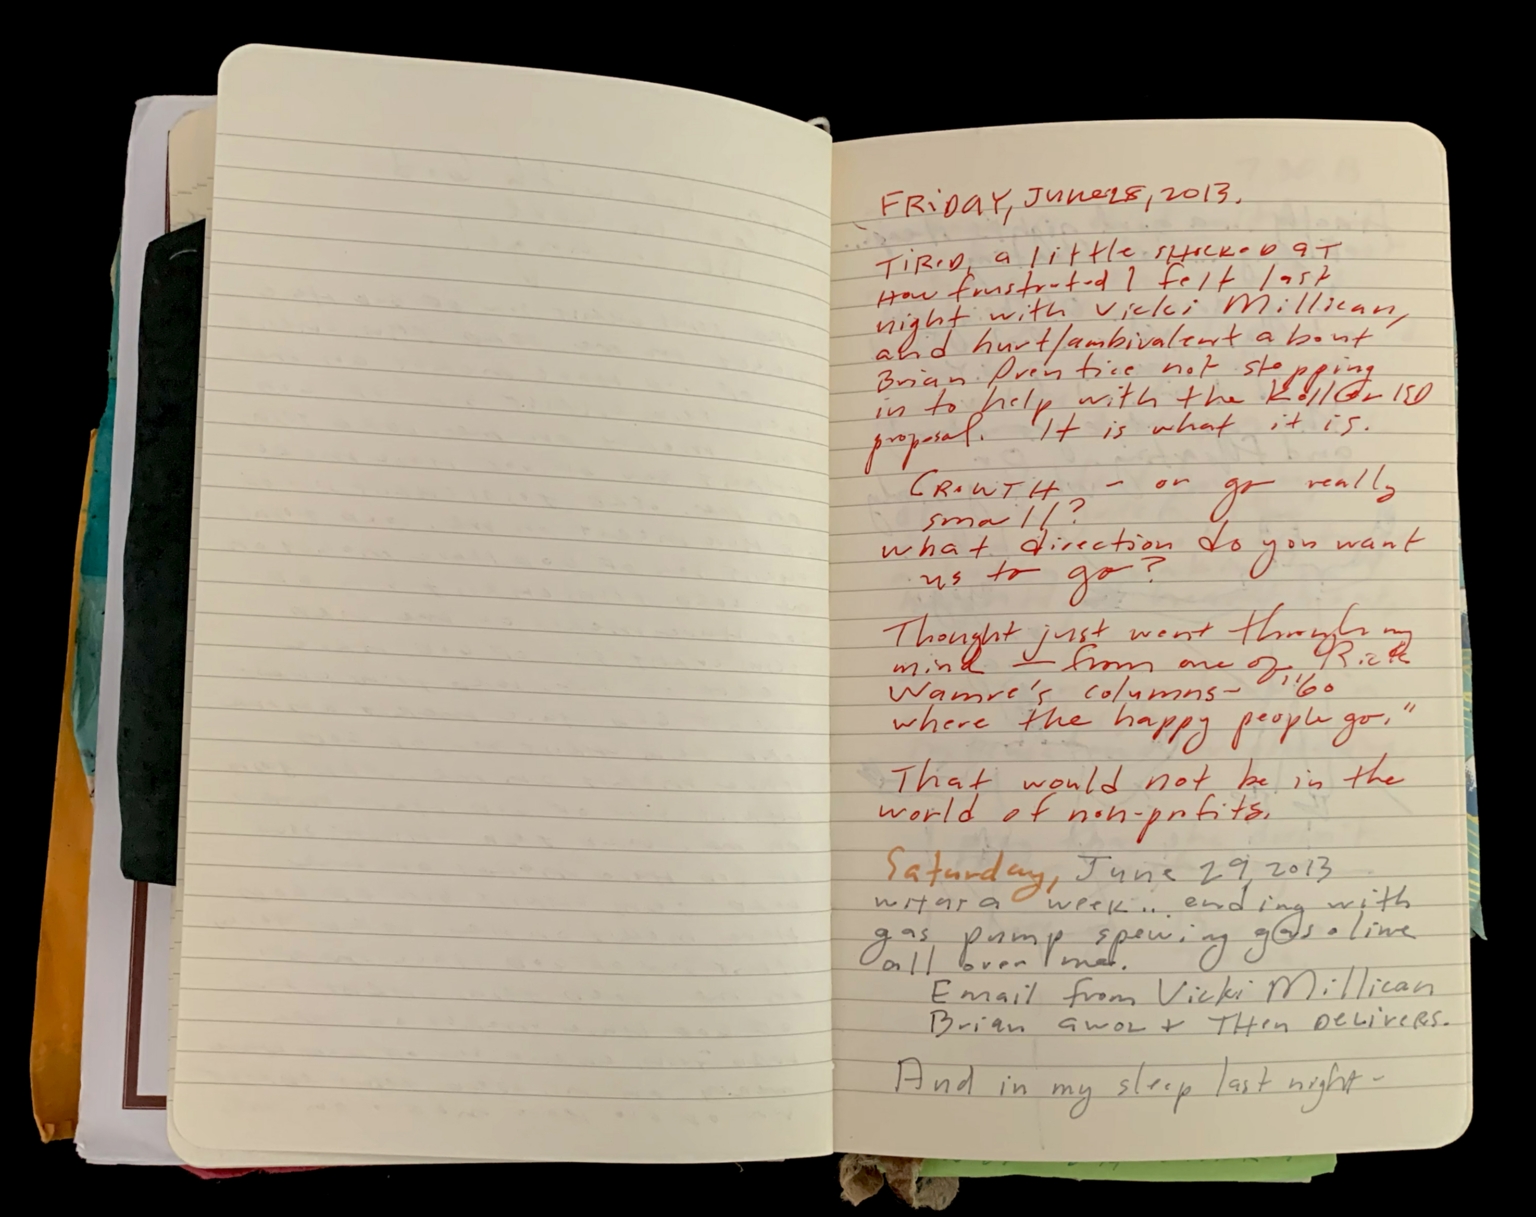 FRiDAY, June 28, 2013.
TiRED, a little SHOCKED AT
How frustrated I felt last
night with Vicki Millican,
and hurt/ambivalent about
Brian Prentice not stepping
in to help with the Keller ISD
proposal. It is what it is.
GROWTH - or go really
small?
what direction do you want
us to go?
Thought just went through my
mind — from one of Rick
Wamre's columns - "Go
where the happy people go."
That would not be in the
world of non-profits.
Saturday, June 29, 2013
WHAT a week... ending with
gas pump spewing gasoline
all over me.
Email from Vicki Millican
Brian AWOL + THEn DELIVERS.
And in my sleep last night -